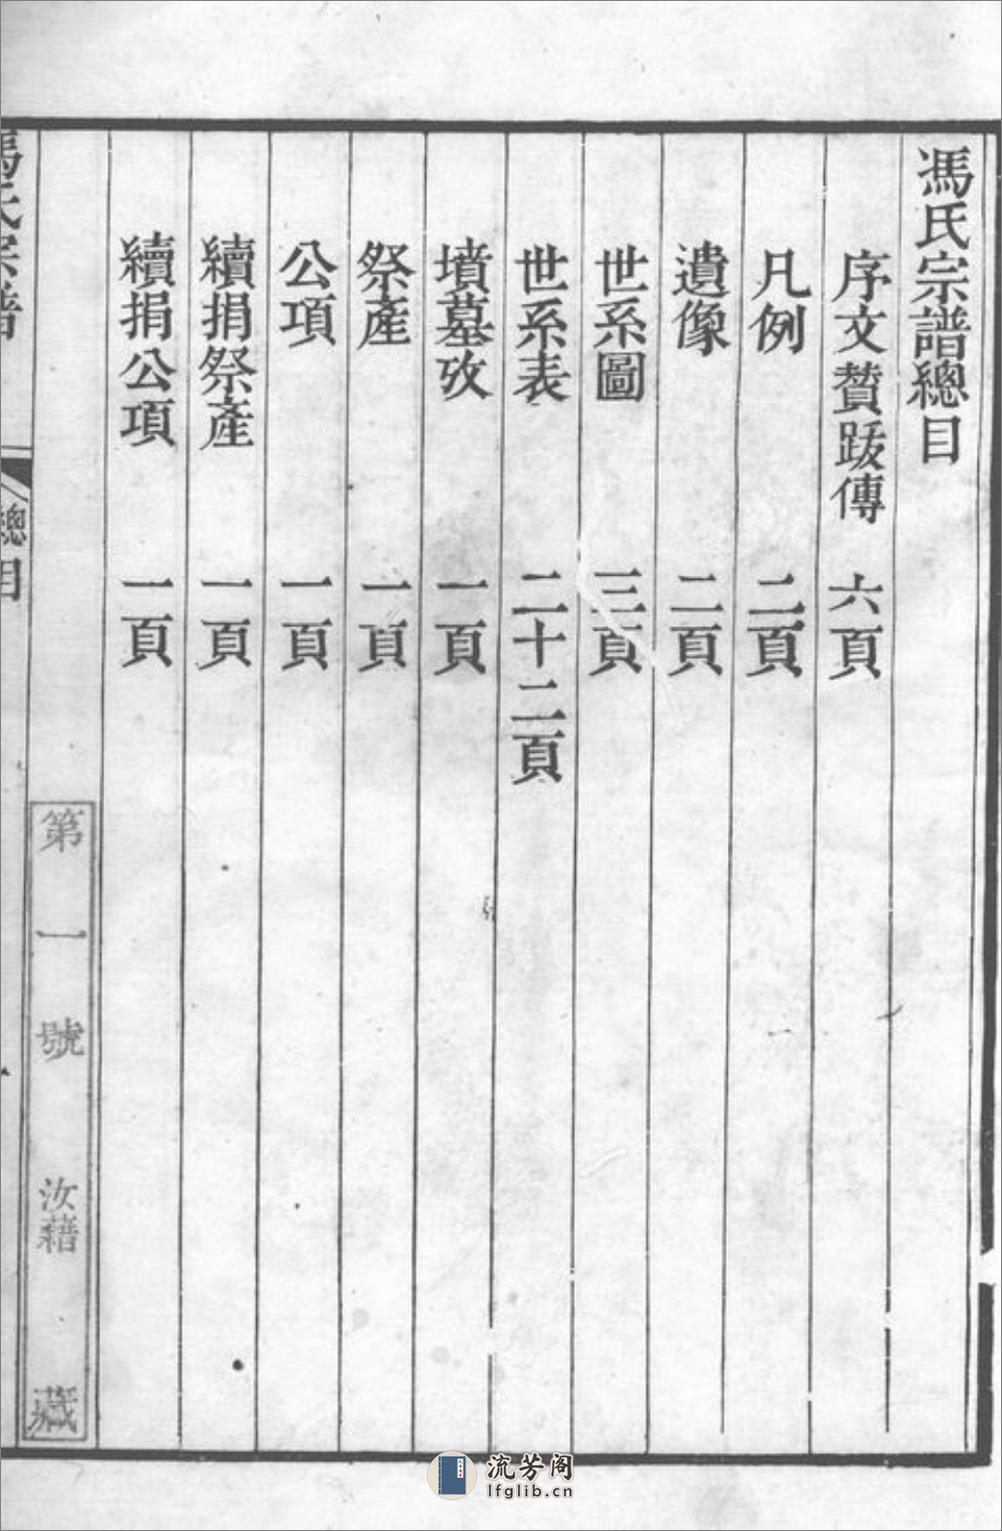 馮氏宗譜總目
序文贊跋傳 六頁
凡例 二頁
遺像 二頁
世系圖 三頁
世系表 二十二頁
墳墓攷 一頁
祭產 一頁
公項 一頁
續捐祭產 一頁
續捐公項 一頁
第一號 汝藉 藏
馮氏宗譜
總目
流芳阁
lfglib.cn